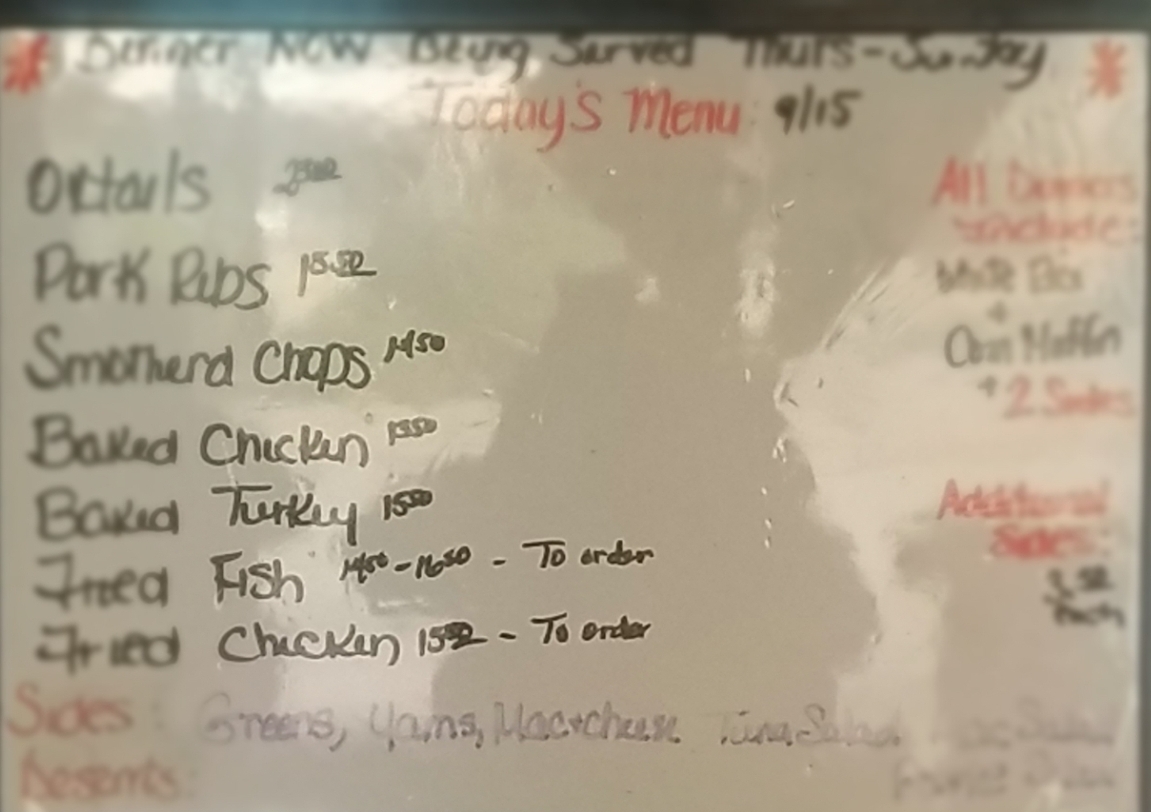 Dinner NOW Being Served Thurs-Sunday
Today's Menu: 9/15
Oxtails
Pork Ribs 15.50
Smotherd Chops 14 50
Baked Chicken 13 50
Baked Turkey 15 50
Fried Fish 14 50 - 16 50 - To order
Fried Chicken 15 50 - To order
Sides: Greens, Yams, Mac+cheese Tuna Salad
Desserts:
All Dinners
Include:
+
Corn Muffin
+ 2 Sides
Additional
Sides: